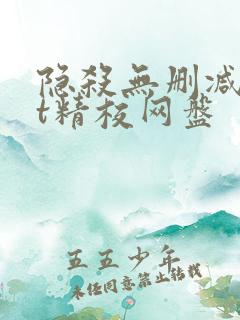 隐殺無删减
t精校网盤
五五少年
未经同意禁止转载